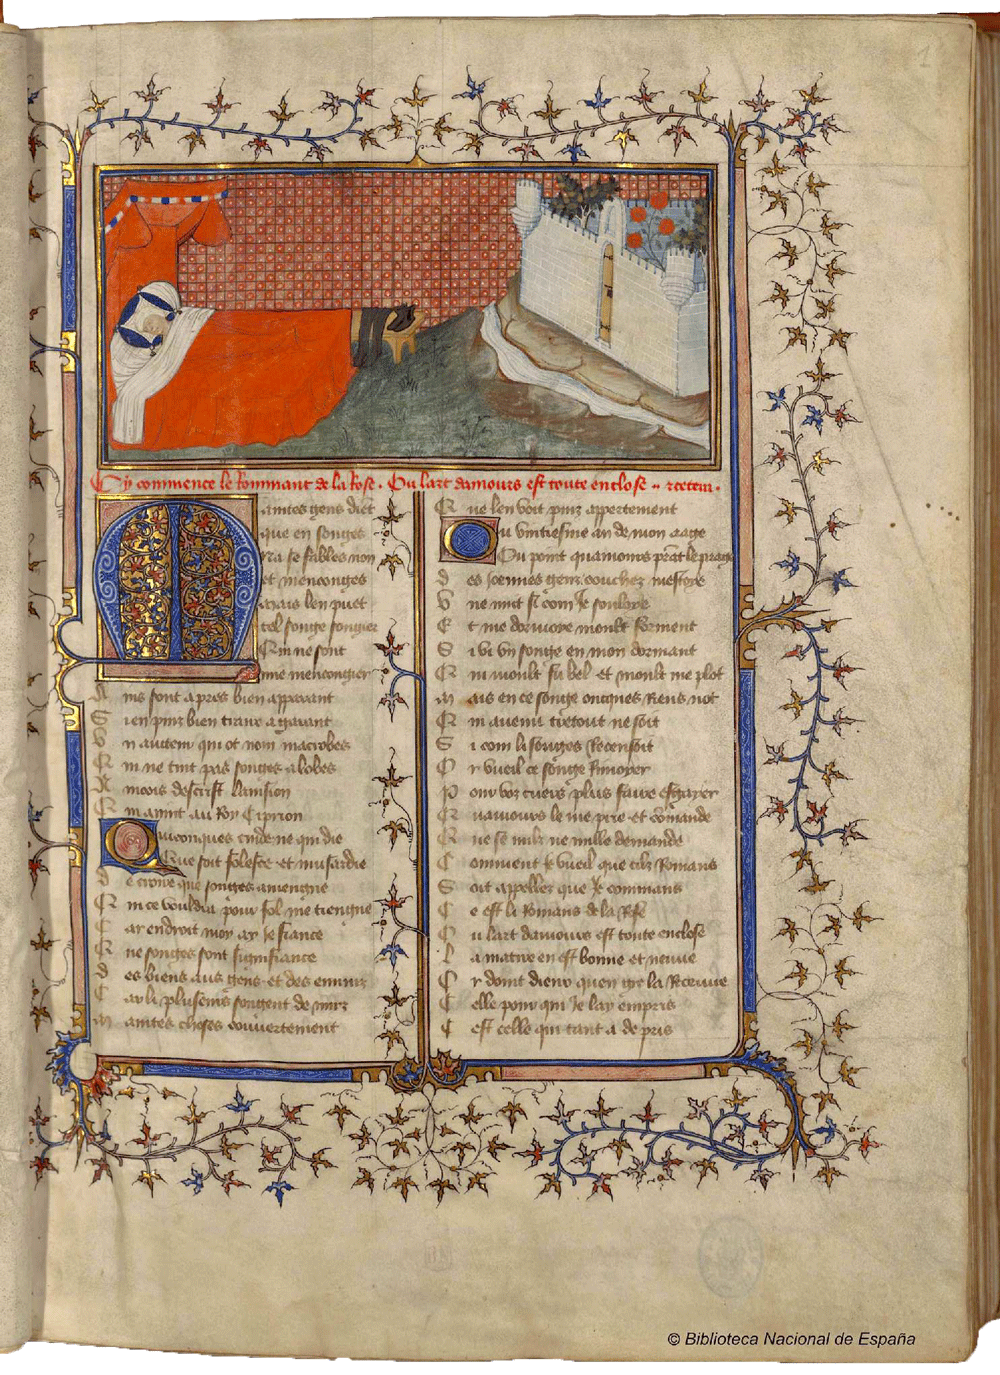 1
Cy commence le Rommant de la Rose . Ou lart damours est toute enclose
Maintes gens dient
que en songes
Na se fables non
et menconges
Mais len puet
tel songe songier
Qui ne sont
mie mencongier
Ains sont apres bien apparant
Si en puis bien traire a garant
Un aucteur qui ot nom macrobes
Qui ne tint pas songes a lobes
Aincois descrist lauision
Qui auint au Roy Cipion
Quiconques cuide ne qui die
Que soit folesce et musardie
de croire que songes auiengne
Qui ce vouldra pour fol me tiengne
Car endroit moy ay Je fiance
Que songes sont signifiance
des biens aus gens et des ennuis
Car li pluseurs songent de nuis
Maintes choses couuertement
Que len voit puis appertement
Ou vintiesme an de mon aage
Ou point quamours prent le peage
des Joennes gens couchez mestoie
Une nuit si com Je souloie
Et me dormoie moult forment
Si vi vn songe en mon dormant
Qui moult fu bel et moult me plot
Mais en ce songe oncques Riens not
Qui auenu trestout ne soit
Si com li songes Recensoit
Or vueil ce songe Rimoyer
Pour voz cuers plus faire esgayer
Quamours le me prie et comande
Que se nulz ne nulle demande
Comment Je vueil que cilz Romans
Soit appellez que Je commans
Ce est li Romans de la Rose
Ou lart damours est toute enclose
La matire en est bonne et neuue
Or doint dieux quen gre la Recueue
Celle pour qui Je lay empris
Cest celle qui tant a de pris
© Biblioteca Nacional de España